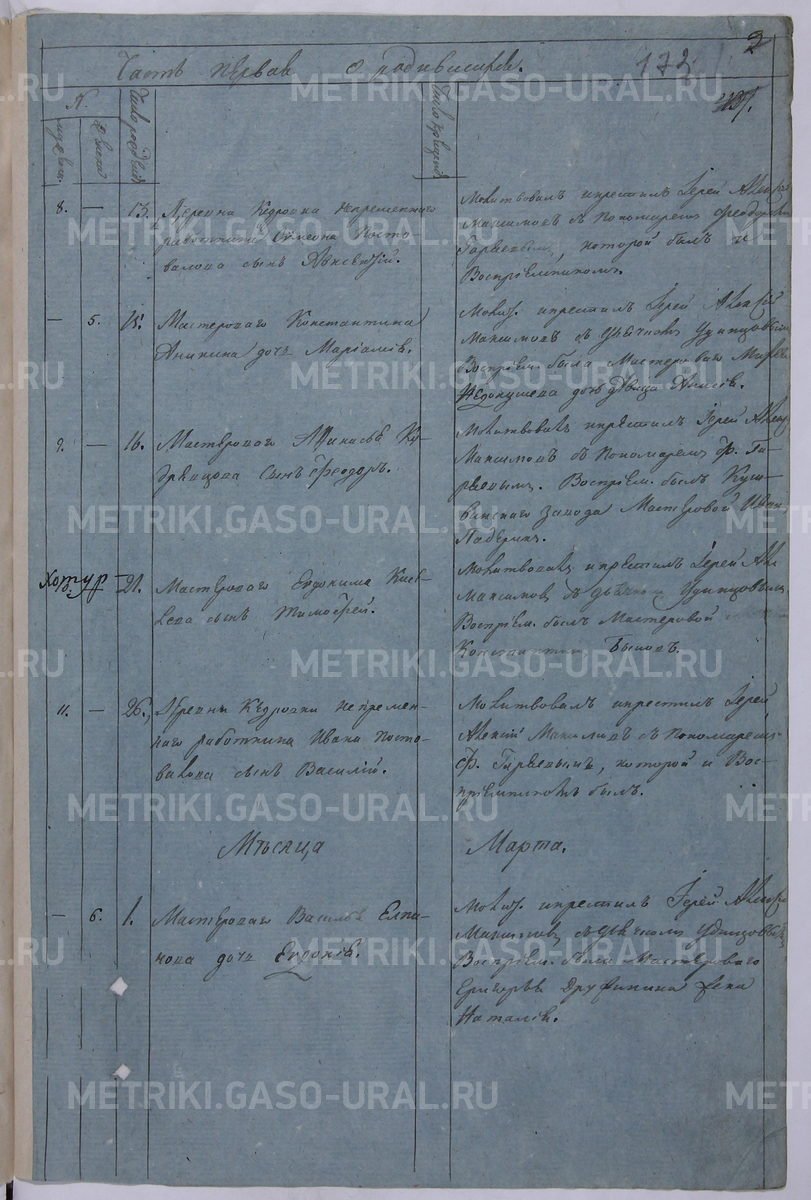 2
Часть первая о родившихся.
172
N.
мужеска
женска
Число рождения
Число крещения
8. — 13. Деревни Кедровки непременнаго
работника Симеона Посто-
валова сынъ Авксентий.
Молитвовалъ и крестилъ Iерей Алексей
Максимовъ с Пономаремъ Феодоромъ
которой былъ и
Восприемникомъ.
— 5. 15. Мастероваго Константина
Аникина дочь Мариамiя.
Молит. и крестилъ Iерей Алексей
Максимовъ с дьячкомъ Удинцовымъ
Восприем. была Мастероваго
дочь девица Анисiя.
9. — 16. Мастероваго Афанасья Ку-
дрявцова сынъ Феодоръ.
Молитвовалъ и крестилъ Iерей Алекс.
Максимовъ с Пономаремъ Ф. Га-
ряевымъ. Восприем. былъ Куш-
винскаго завода Мастеровой Иванъ
Падеринъ.
— 21. Мастероваго Евдокима Кисе-
лева сынъ Тимофей.
Молитвовалъ и крестилъ Iерей Ал.
Максимовъ с дьячкомъ Удинцовымъ
Восприем. былъ Мастеровой
Константинъ Быковъ.
11. — 26. Деревни Кедровки непремен-
наго работника Ивана Посто-
валова сынъ Василий.
Молитвовалъ и крестилъ Iерей
Алексий Максимовъ с Пономаремъ
Ф. Гаряевымъ, которой и Вос-
приемникомъ былъ.
Мѣсяца Марта.
— 6. 1. Мастероваго Василья Елпа-
нова дочь Евдокия.
Молит. и крестилъ Iерей Алексей
Максимовъ с дьячкомъ Удинцовымъ
Восприем. была Мастероваго
Григорья Дружинина жена
Наталiя.
METRIKI.GASO-URAL.RU